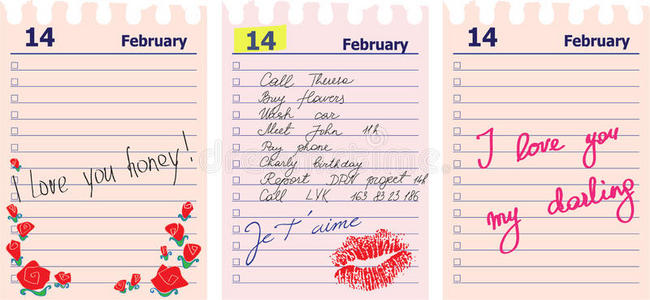 14 February
I love you honey!
14 February
Call Theresa
Buy flowers
Wash car
Meet John 11h
Pay phone
Charly birthday
Report DRM project 14h
Call LVK 163 83 23 186
Je T'aime
14 February
I love you
my darling
dreamstime